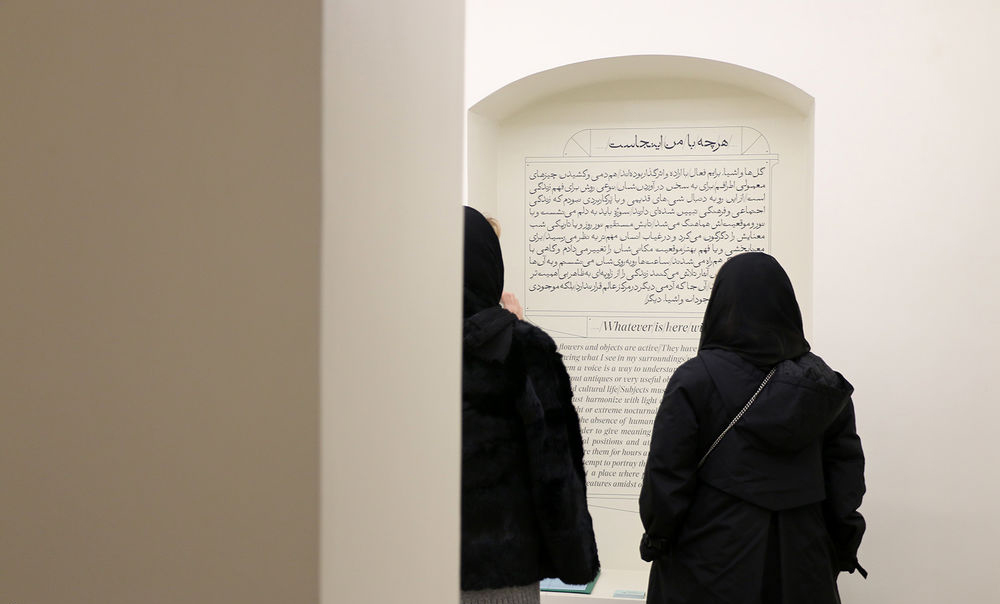 هرچه با/ من/ اینجاست
گل‌ها و اشیا، برایم فعال/ با اراده و اثرگذار بوده‌اند/ هم‌دمی و کشیدن چیزهای
معمولی اطرافم/ برای به سخن در آوردن‌شان/ نوعی روش برای فهم زندگی
است/ از این رو به دنبال شی‌های قدیمی و یا پرکاربردی نبودم که زندگی
اجتماعی و فرهنگی تبیین شده‌ای دارند/ سوژه باید به دلم می‌نشست و با
نور و موقعیت‌اش هماهنگ می‌شد/ تابش مستقیم نور روز و یا تاریکی شب
معنایش را دگرگون می‌کرد و در غیاب انسان مهم‌تر به نظر می‌رسید/ برای
معنابخشی و یا فهم بهتر موقعیت مکانی‌شان را تغییر می‌دادم و گاهی با
هم‌راه می‌شدند/ ساعت‌ها روبه‌روی‌شان می‌نشستم و به آن‌ها
آثار تلاش می‌کنند زندگی را از زاویه‌ای به ظاهر بی‌اهمیت‌تر
آن جا که آدمی دیگر در مرکز عالم قرار ندارد/ بلکه موجودی
موجودات و اشیا، دیگر/
/Whatever/is/here/wi
flowers and objects are active/They have
wing what I see in my surroundings
m a voice is a way to understan
out antiques or very useful ob
d cultural life/Subjects mus
ust harmonize with light
ht or extreme nocturnal
the absence of human
der to give meaning
l positions and at
re them for hours a
tempt to portray th
y a place where
eatures amidst o